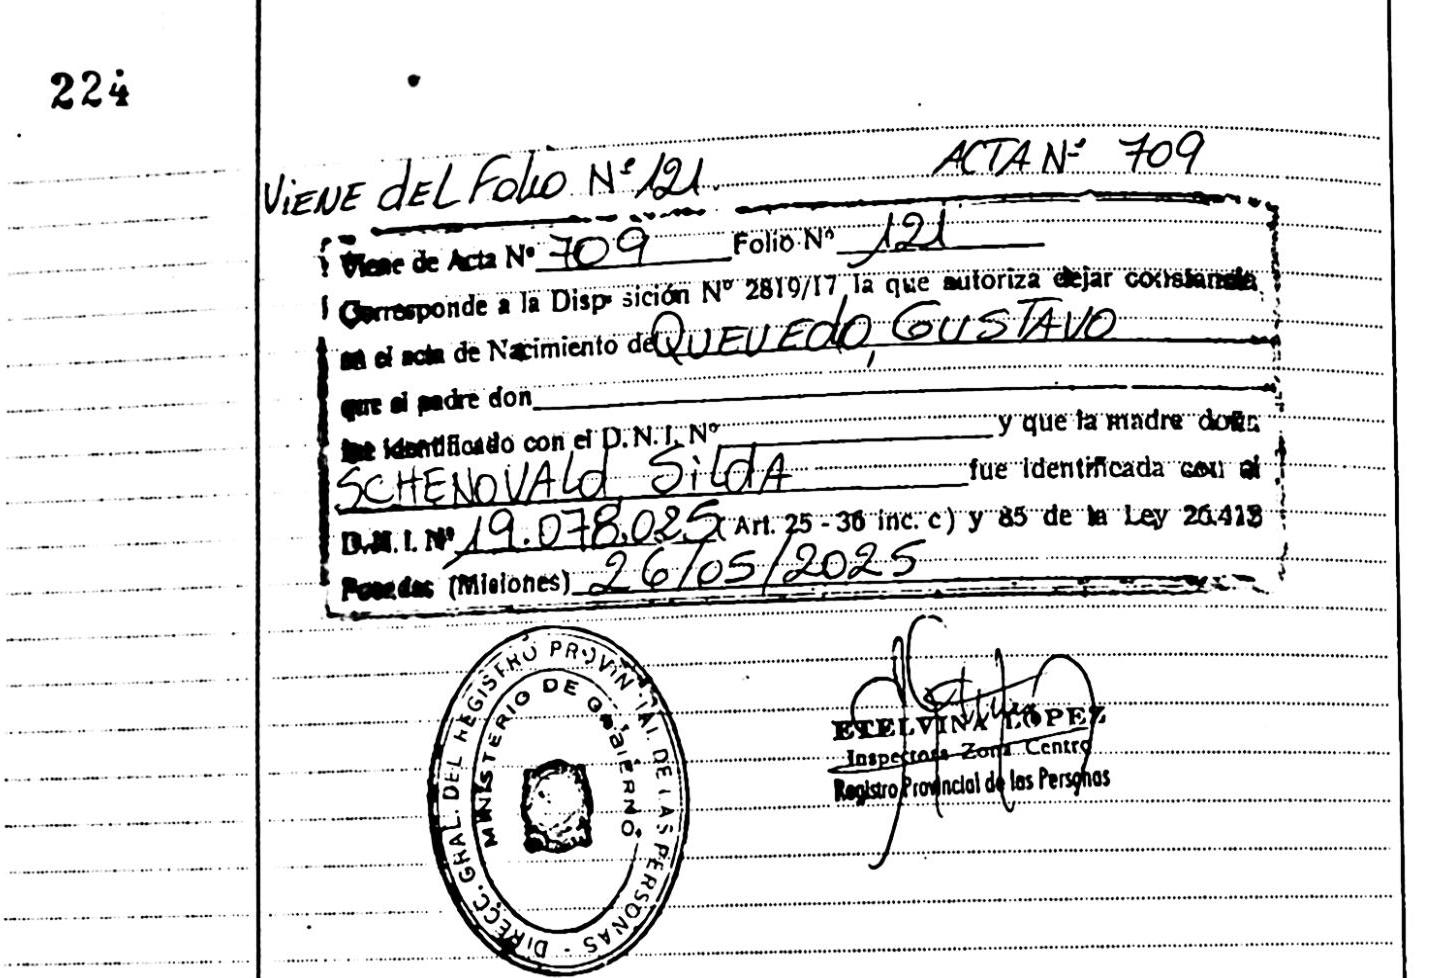 224
VIENE dEL Folio Nº 121.
ACTA Nº 709
Viene de Acta Nº 709 Folio Nº 121
Corresponde a la Disposición Nº 2819/17 la que autoriza dejar constancia
en el acta de Nacimiento de QUEVEdO, GUSTAVO
que el padre don
fue identificado con el D.N.I. Nº y que la madre doña
SCHENOVALd SildA fue identificada con el
D.N.I. Nº 19.078.025 (Art. 25 - 36 inc. c) y 85 de la Ley 26.413
Posadas (Misiones) 26/05/2025
DIRECC. GRAL. DEL REGISTRO PROVINCIAL DE LAS PERSONAS -
MINISTERIO DE GOBIERNO
ETELVINA LOPEZ
Inspectora Zona Centro
Registro Provincial de las Personas